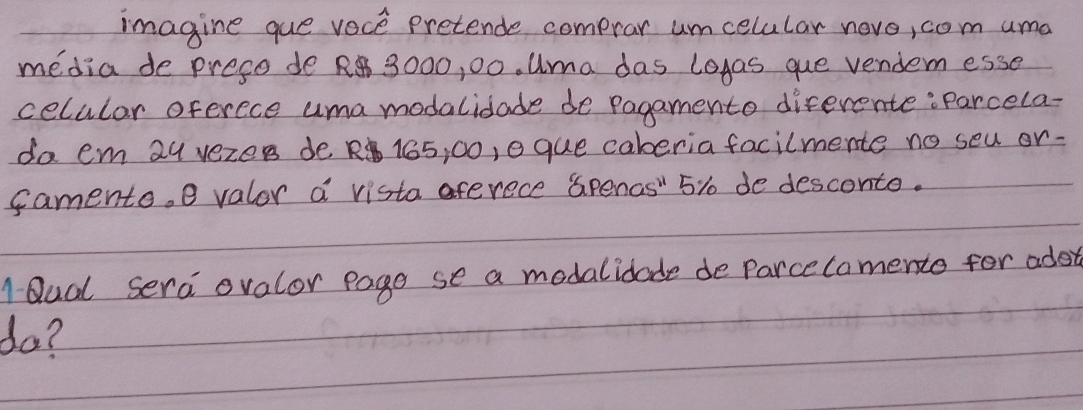 imagine que você pretende comprar um celular novo, com uma
média de preço de R$ 3000,00. Uma das lojas que vendem esse
celular oferece uma modalidade de pagamento diferente: parcela-
da em 24 vezes de R$ 165,00, o que caberia facilmente no seu or-
çamento. O valor á vista oferece "apenas" 5% de desconto.
1-Qual será o valor pago se a modalidade de parcelamento for adot
da?